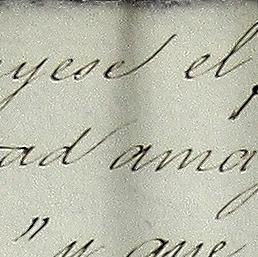 eyese el
tad ama
" y que